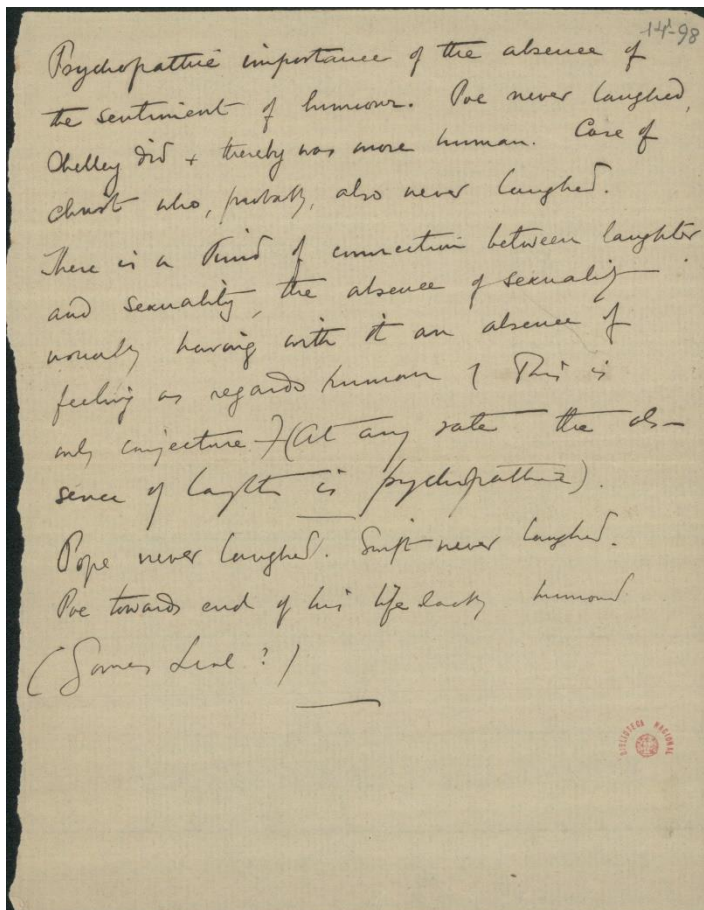 14¹-98
Psychopathic importance of the absence of
the sentiment of humour. Poe never laughed,
Shelley did + thereby was more human. Case of
Christ who, probably, also never laughed.
There is a kind of connection between laughter
and sexuality, the absence of sexuality
usually having with it an absence of
feeling as regards humour ? This is
only conjecture (At any rate the ab-
sence of laughter is psychopathic).
Pope never laughed. Swift never laughed.
Poe towards end of his life lacks humour
(Gomes Leal?)
BIBLIOTECA NACIONAL